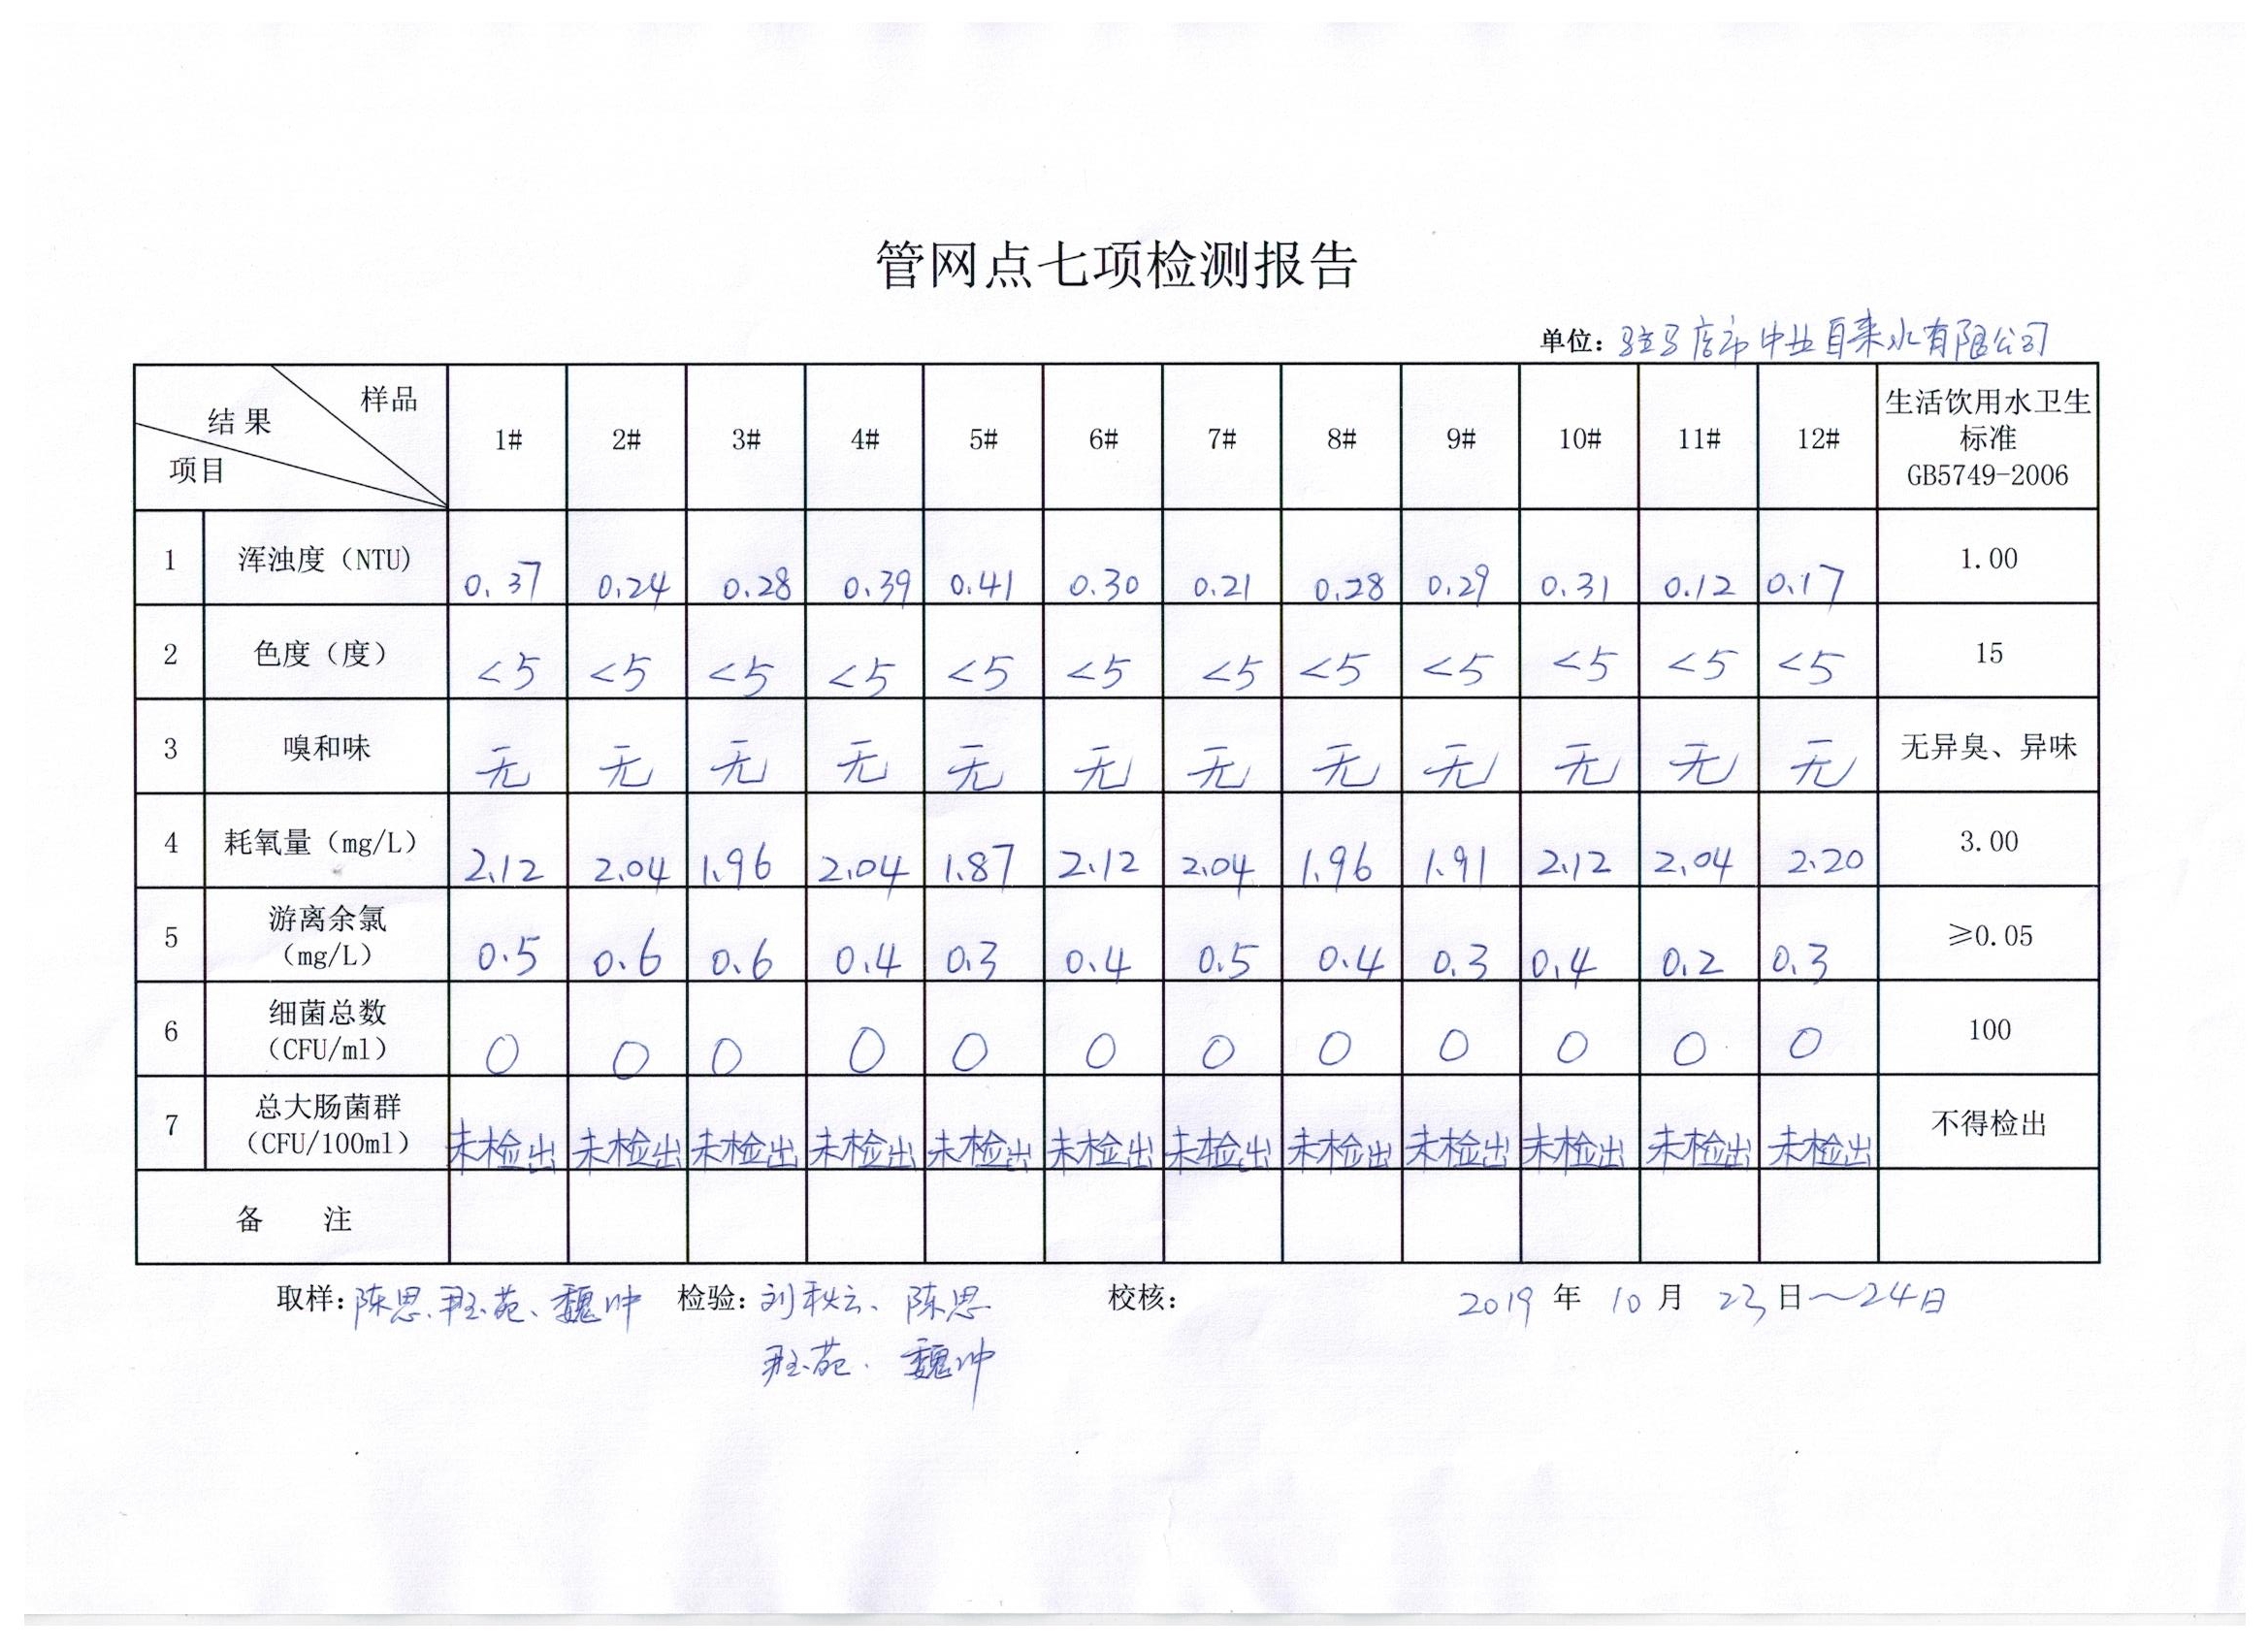 管网点七项检测报告
单位：驻马店市中业自来水有限公司
结果 样品 项目 1# 2# 3# 4# 5# 6# 7# 8# 9# 10# 11# 12# 生活饮用水卫生标准 GB5749-2006
1 浑浊度（NTU) 0.37 0.24 0.28 0.39 0.41 0.30 0.21 0.28 0.29 0.31 0.12 0.17 1.00
2 色度（度） <5 <5 <5 <5 <5 <5 <5 <5 <5 <5 <5 <5 15
3 嗅和味 无 无 无 无 无 无 无 无 无 无 无 无 无异臭、异味
4 耗氧量（mg/L） 2.12 2.04 1.96 2.04 1.87 2.12 2.04 1.96 1.91 2.12 2.04 2.20 3.00
5 游离余氯（mg/L） 0.5 0.6 0.6 0.4 0.3 0.4 0.5 0.4 0.3 0.4 0.2 0.3 ≥0.05
6 细菌总数（CFU/ml） 0 0 0 0 0 0 0 0 0 0 0 0 100
7 总大肠菌群（CFU/100ml） 未检出 未检出 未检出 未检出 未检出 未检出 未检出 未检出 未检出 未检出 未检出 未检出 不得检出
备 注
取样：陈思、苑、魏冲 检验：刘秋云、陈思 校核： 2019 年 10 月 23 日～24日
苑、魏冲